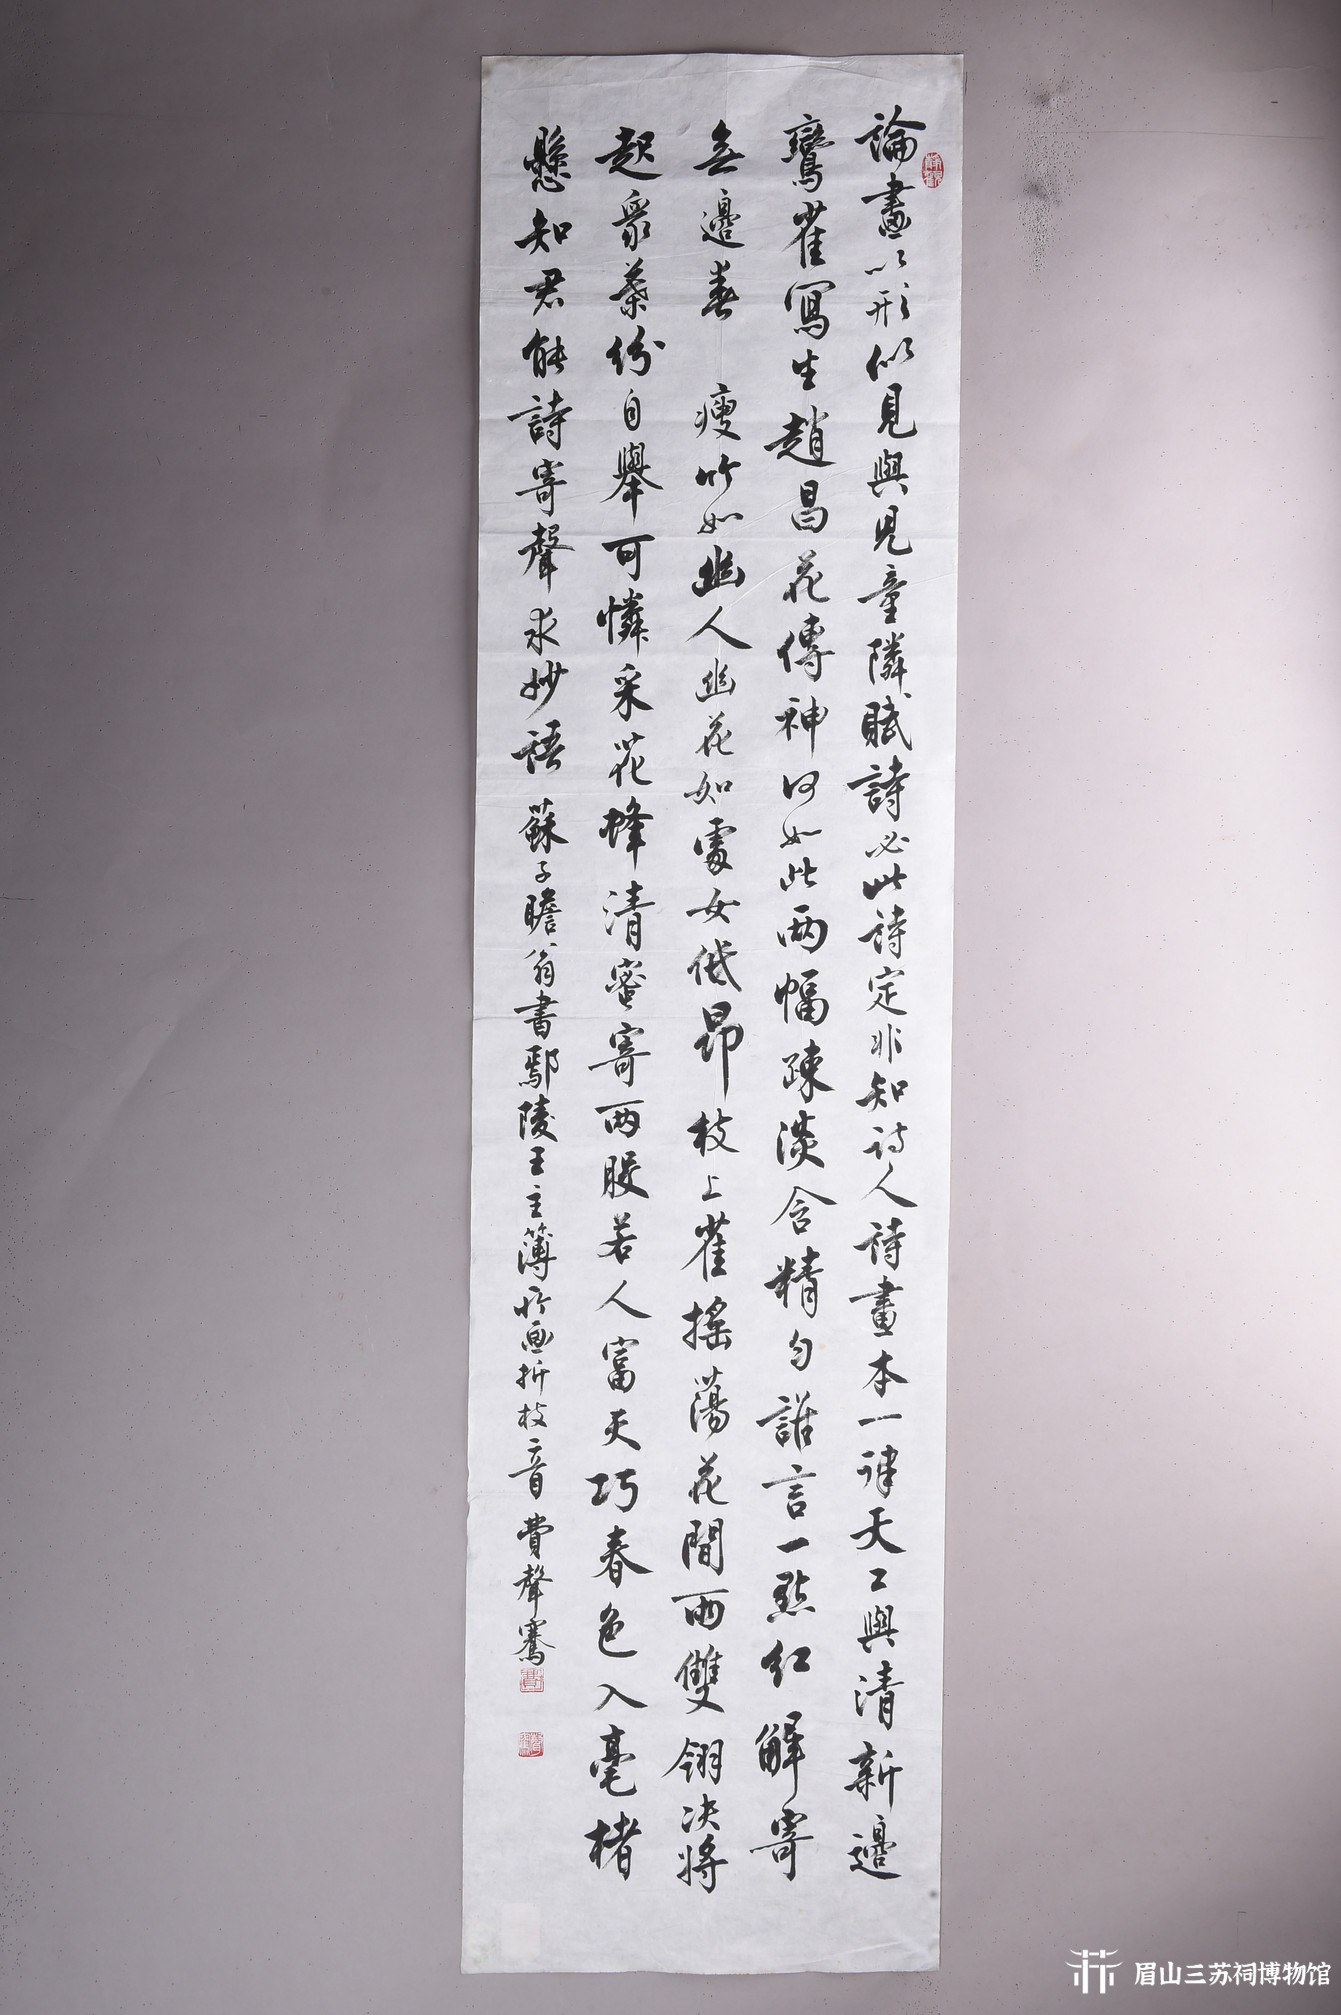 論畫以形似見與兒童隣賦詩必此詩定非知詩人詩畫本一律天工與清新邊
鸞雀寫生趙昌花傳神何如此兩幅踈淡含精勻誰言一點紅解寄
無邊春 瘦竹如幽人幽花如處女低昂枝上雀搖蕩花間雨雙翎決將
起衆葉紛自舉可憐采花蜂清蜜寄兩股若人富天巧春色入毫楮
懸知君能詩寄聲求妙語 蘇子瞻翁書鄢陵王主簿所画折枝二首 費聲騫
眉山三苏祠博物馆